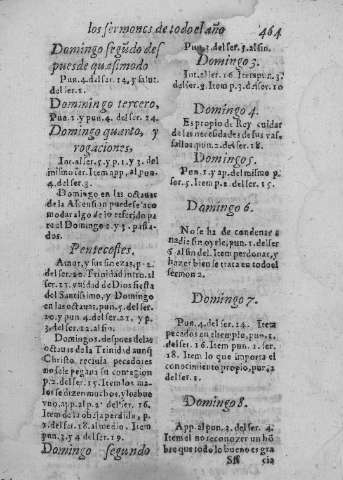 los sermones de todo el año 464
Domingo segũdo des
pues de quasimodo
Pun. 4. del ser. 14. y salut.
del ser. 1.
Dominingo tercero,
Pun. 1. y pun. 4. del ser. 24.
Domingo quarto, y
rogaciones,
Int. al ser. 5. y p. 1. y 3. del
mismo ser. Item app. al pun.
4. del ser. 3.
Domingo en las octauas
de la Ascension puedese aco
modar algo de lo referido pa
ra el Domingo 2. y 3. passa-
dos.
Pentecostes.
del ser. 20. Trinidad intro. al
ser. 13. vnidad de Dios fiesta
del Santissimo, y Domingo
en las octauas, pun. 5. del ser.
20. y pun. 4. del ser. 21. y p.
3. del ser. 22. al fin.
Domingos, despues de las
octauas de la Trinidad aunq̃
Christo recebia pecadores
no se le pegaua su contagion
p. 2. del ser. 15. Item los ma-
los se dizen muchos, y lo bue
vno. app. al p. 2. del ser. 16.
Item de la obeja perdida, p.
2. del ser. 18. al medio. Item
pun. 3. y 4. del ser. 19.
Domingo segundo
Pun. 3. del ser. 5. al fin.
Domingo 3.
Int. al ser. 16. Item pun. 3.
del ser. 8. Item p. 3. del ser. 10
Domingo 4.
Es propio de Rey cuidar
de las necessidades de sus vas-
sallos pun. 2. del ser. 18.
Domingo 5.
Pun. 1. y ap. del mismo p.
ser. 5. Item p. 1. del ser. 15.
Domingo 6.
No se ha de condenar a
nadie sin oyrle, pun. 1. del ser
6. al fin del. Item perdonar, y
hazer bien se trata en todo el
sermon 2.
Domingo 7.
Pun. 4. del ser. 14. Item
pecados en exemplo, pun. 1.
del ser. 16. Item pun. 1. ser.
18. Item lo que importa el
conocimiento propio, pun. 2.
del ser. 1.
Domingo 8.
App. al pun. 3. del ser. 4.
Item el no reconocer vn hõ
bre que todo lo bueno es gra
cia